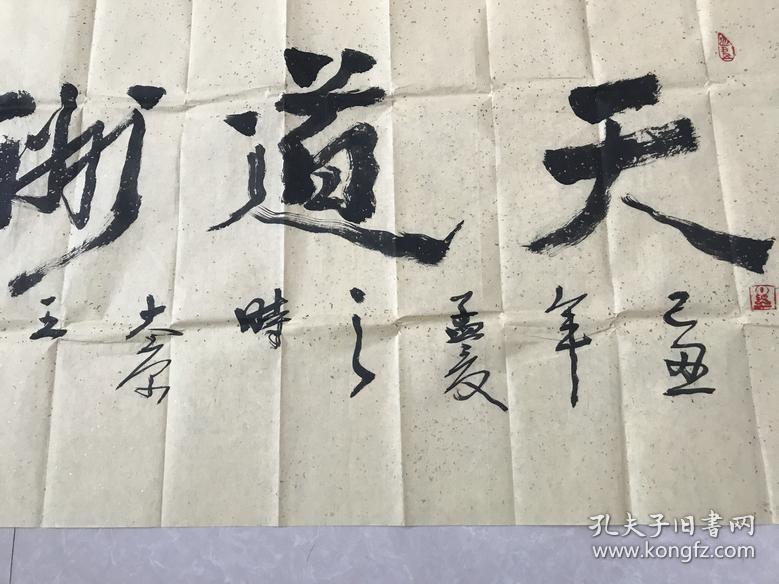 天道酬
己丑年孟夏之時王
孔夫子旧书网
www.kongfz.com